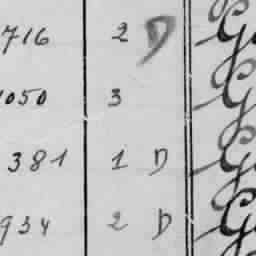 716 2 D G
1050 3 G
381 1 D G
934 2 D G